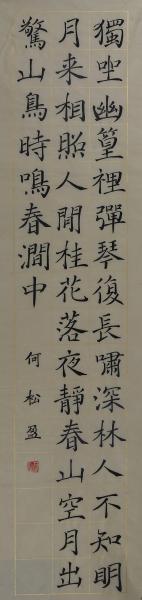 獨坐幽篁裡彈琴復長嘯深林人不知明
月来相照人閒桂花落夜靜春山空月出
驚山鳥時鳴春澗中
何松盈